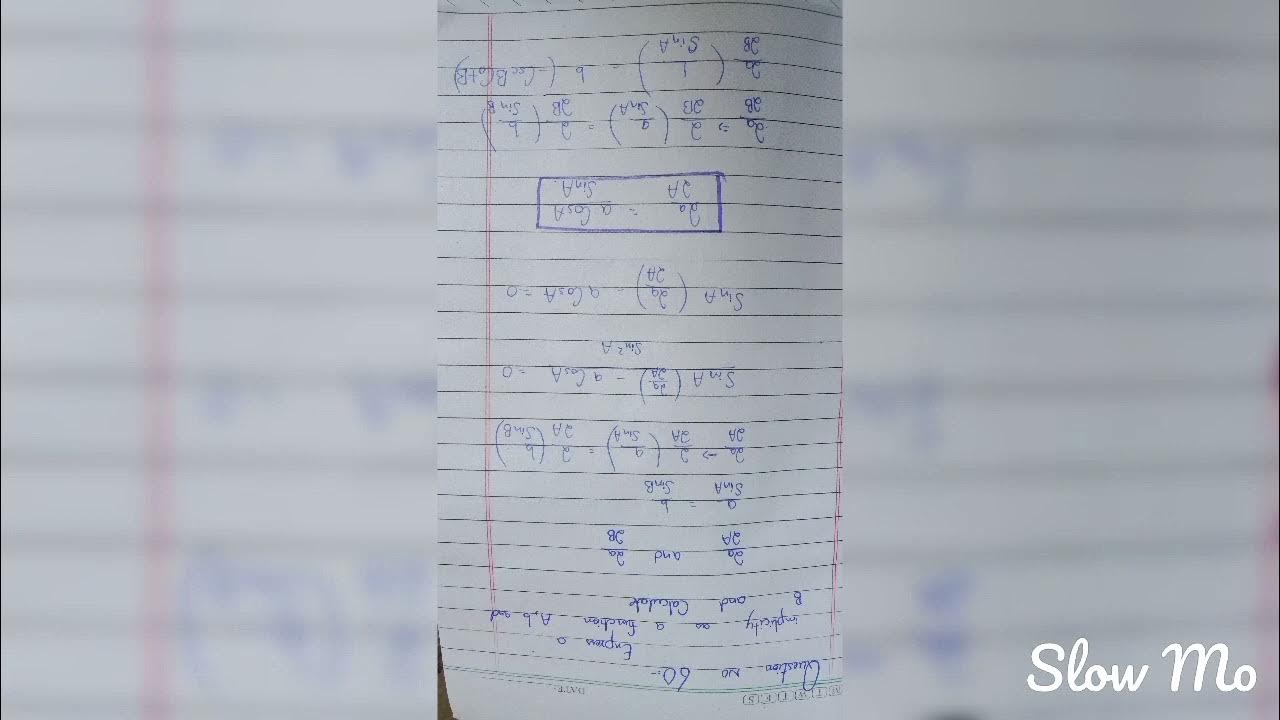 M T W T F S
DATE:
Question no 60:-
Express a
implicitly as a function A, b and
B and Calculate
∂a/∂A and ∂a/∂B
a/SinA = b/SinB
∂a/∂A → ∂/∂A (a/SinA) = ∂/∂A (b/SinB)
SinA (∂a/∂A) - a CosA = 0
Sin²A
SinA (∂a/∂A) - a CosA = 0
∂a/∂A = a CosA/SinA.
∂a/∂B ⇒ ∂/∂B (a/SinA) = ∂/∂B (b/SinB)
∂a/∂B (1/SinA) = b (-CscB CotB)
Slow Mo